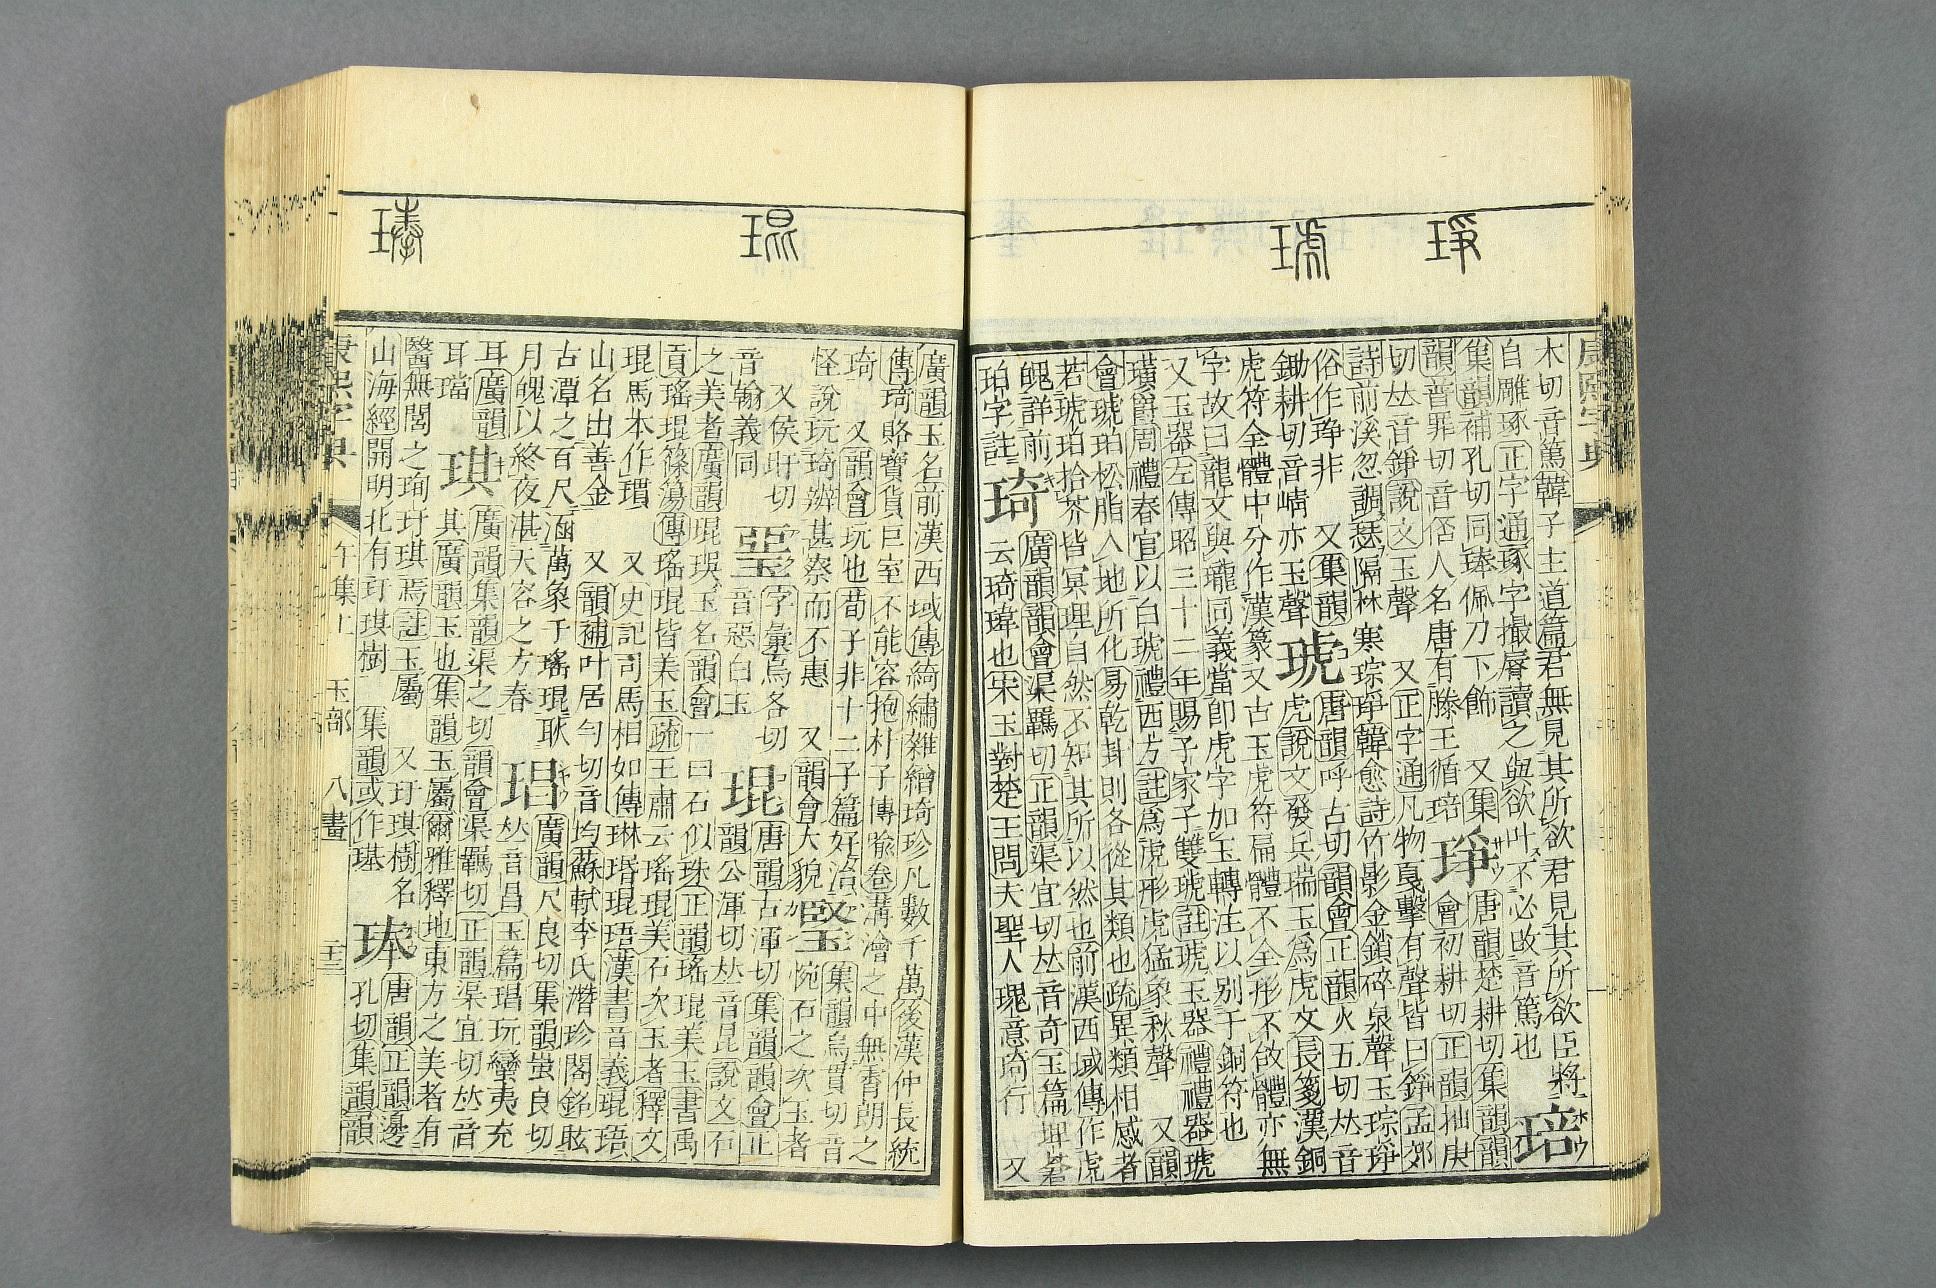 琤
琥
康熙字典
木切音篤韓子主道篇君無見其所欲君見其所欲臣將
自雕琢正字通琢字撮脣讀之與欲叶不必攺音篤也 琣 ホウ
集韻補孔切同琫佩刀下飾 又集 琤 唐韻楚耕切集韻韻
韻普罪切音人名唐有滕王循琣 會初耕切正韻抽庚
切𠀤音錚說文玉聲 又正字通凡物戛擊有聲皆曰錚孟郊
詩前溪忽調隔林寒琮琤韓愈詩竹影金鎖碎泉聲玉琮琤
俗作琤非 又集韻 琥 唐韻呼古切韻會正韻火五切𠀤音
鋤耕切音崝亦玉聲 虎說文發兵瑞玉爲虎文長箋漢銅
虎符全體中分作漢篆又古玉虎符扁體不全形不故體亦無
字故曰龍文與瓏同義當卽虎字加玉轉注以别于銅符也
又玉器左傳昭三十二年賜子家子雙琥註琥玉器禮禮器琥
璜爵周禮春官以白琥禮西方註爲虎形虎猛象秋聲 又韻
會琥珀松脂入地所化易乾卦則各從其類也疏異類相感者
若琥珀拾芥皆冥理自然不知其所以然也前漢西域傳作虎
魄詳前 廣韻韻會渠羈切正韻渠宜切𠀤音奇玉篇埤蒼
珀字註 琦 云琦瑋也宋玉對楚王問夫聖人瑰意琦行 又
琨
琫
廣韻玉名前漢西域傳綺繡雜繒琦珍凡數千萬後漢仲長統
傳琦賂寶貨巨室不能容抱朴子博喻卷溝澮之中無宵朗之
琦 又韻會玩也荀子非十二子篇好治 琧 集韻烏貫切音
怪說玩琦辨甚察而不惠 又韻會大貌 惋石之次玉者
又侯旰切 琧 字彙烏各切 琨 唐韻古渾切集韻韻會正
音翰義同 音惡白玉 韻公渾切𠀤音昆說文石
之美者廣韻琨珸玉名韻會一曰石似珠正韻瑤琨美玉書禹
貢瑤琨篠簜傳瑤琨皆美玉疏王肅云瑤琨美石次玉者釋文
琨馬本作瑻 又史記司馬相如傳琳琘琨珸漢書音義琨珸
山名出善金 又韻補叶居勻切音均蘇軾李氏潛珍閣銘眩
古潭之百尺涵萬象于瑤琨耿 琩 廣韻尺良切集韻蚩良切
月魄以終夜湛天容之方春 𠀤音昌玉篇琩玩蠻夷充
耳廣韻 琪 廣韻集韻渠之切韻會渠羈切正韻渠宜切𠀤音
耳璫 其廣韻玉也集韻玉屬爾雅釋地東方之美者有
醫無閭之珣玗琪焉註玉屬 又玗琪樹名 琫 唐韻正韻邊
山海經開明北有玗琪樹 集韻或作璂 孔切集韻韻
康熙字典 午集上 玉部 八畫 二十三